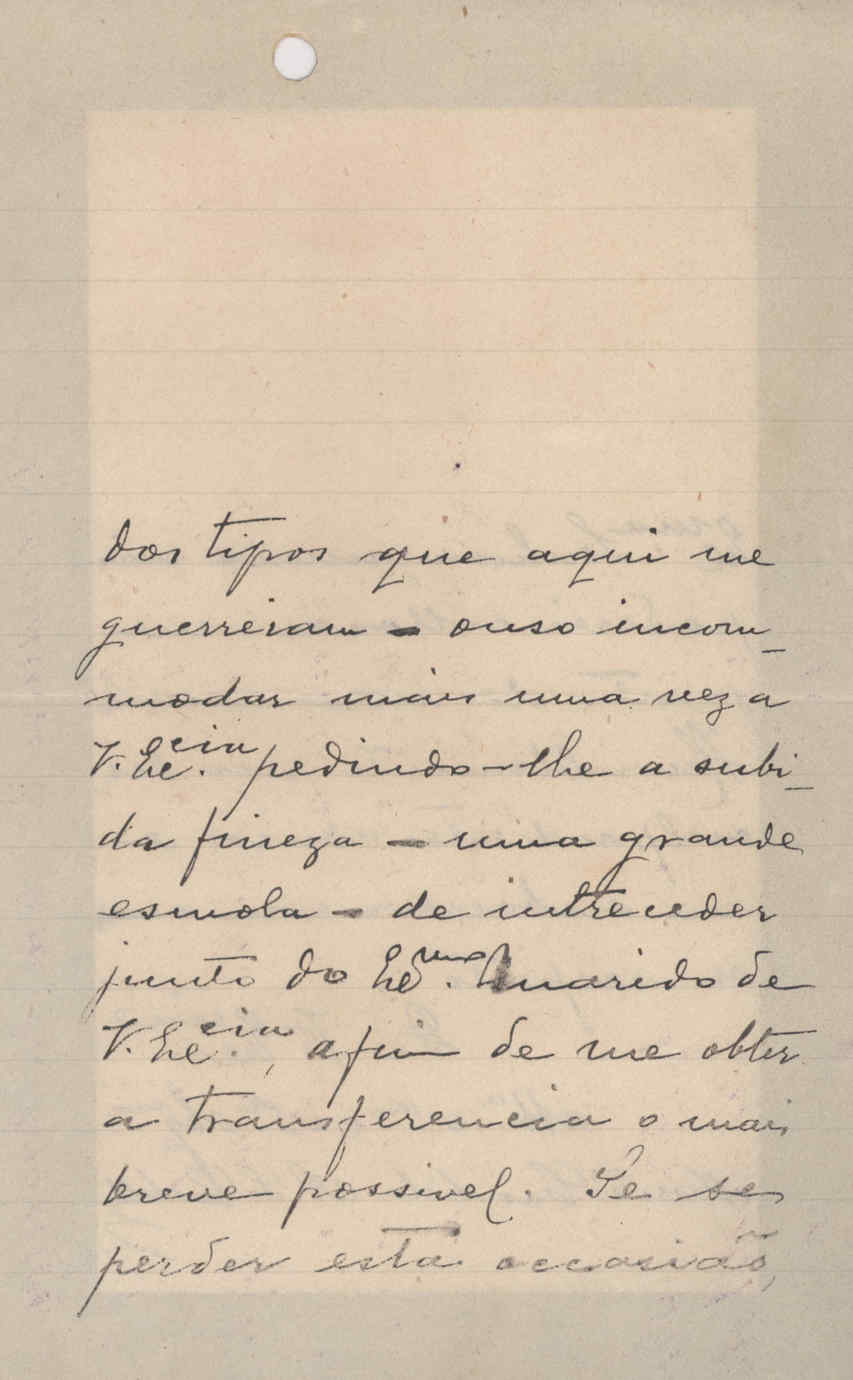 dos tipos que aqui me
guerreiam - ouso incom-
modar mais uma vez a
V. Exc.cia pedindo-lhe a subi-
da fineza - uma grande
esmola - de intreceder
junto do Exc.mo Marido de
V. Exc.cia, afim de me obter
a transferencia o mais
breve possivel. Se se
perder esta occasião,